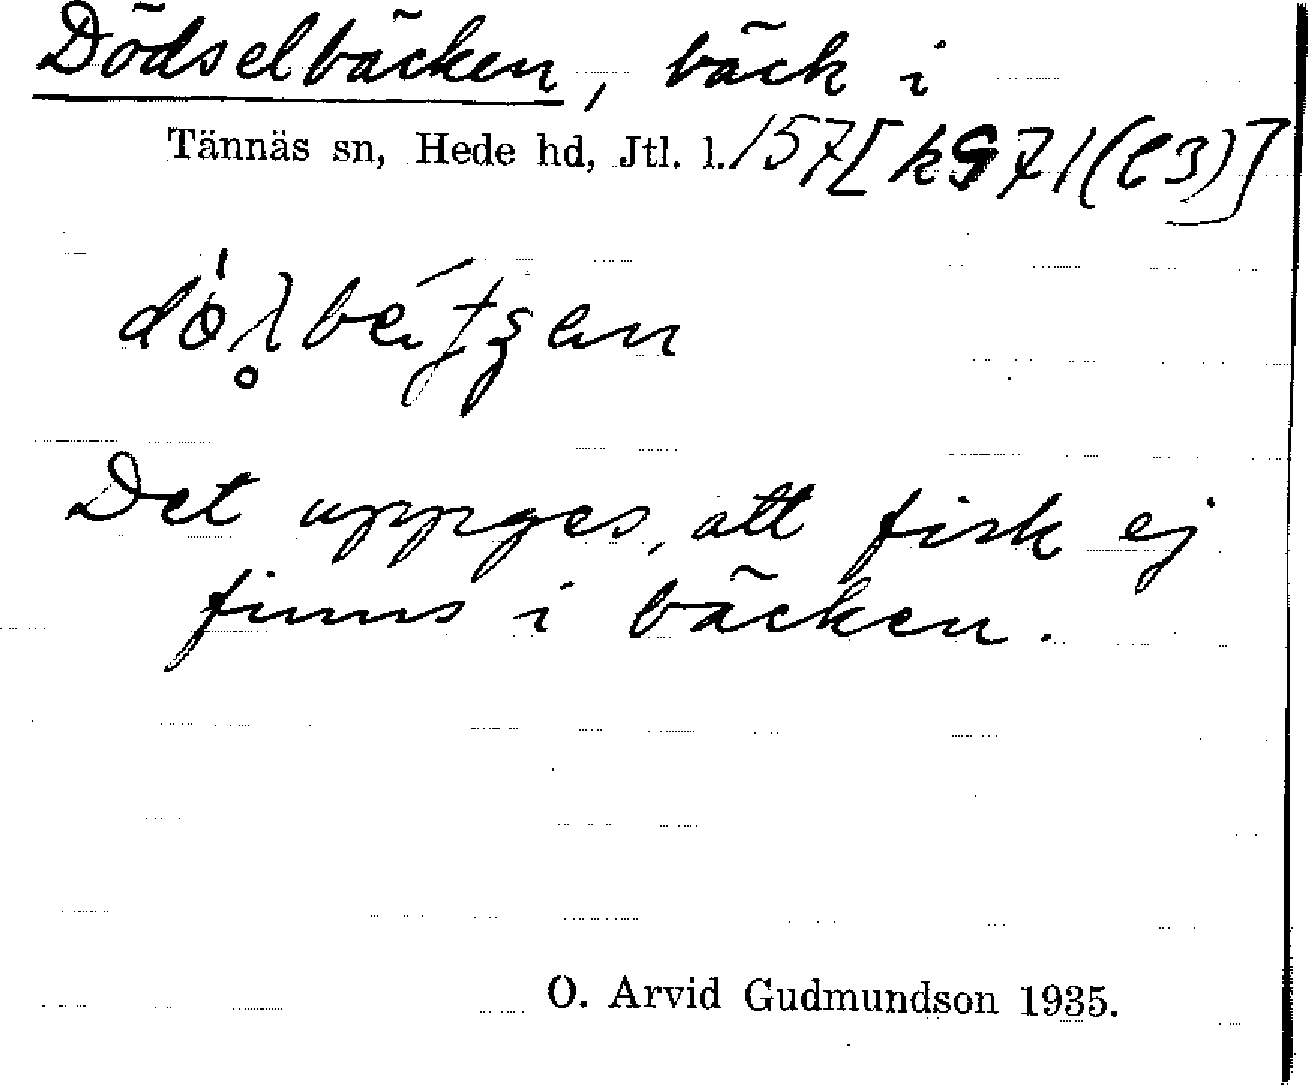 Dödselbäcken, bäck i
Tännäs sn, Hede hd, Jtl. l. 157[k971(l3)]
Det uppges, att fisk ej
finns i bäcken.
O. Arvid Gudmundson 1935.